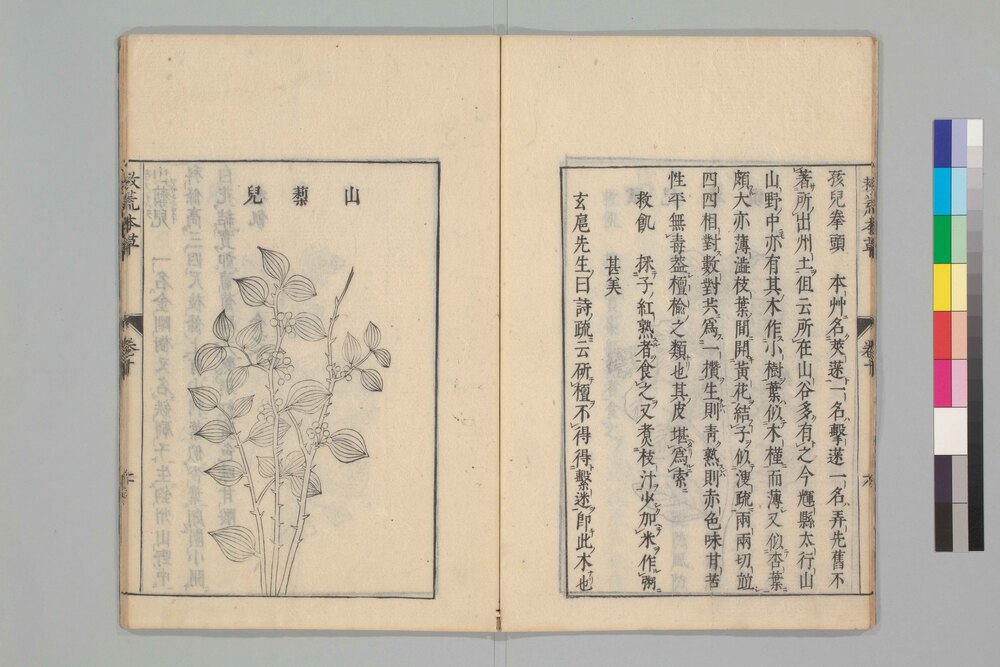 孩兒拳頭　本艸名莢蒾一名擊蒾一名弄先舊不
著所出州土但云所在山谷多有之今輝縣太行山
山野中亦有其木作小樹葉似木槿而薄又似杏葉
頗大亦薄澁枝葉間開黃花結子似溲疏兩兩切並
四四相對數對共爲一攢生則青熟則赤色味甘苦
性平無毒葢檀榆之類也其皮堪爲索
救飢　採子紅熟者食之又煮枝汁少加米作粥
甚美
玄扈先生曰詩疏云斫檀不得得繫迷卽此木也
山藜兒
救荒本草
卷十